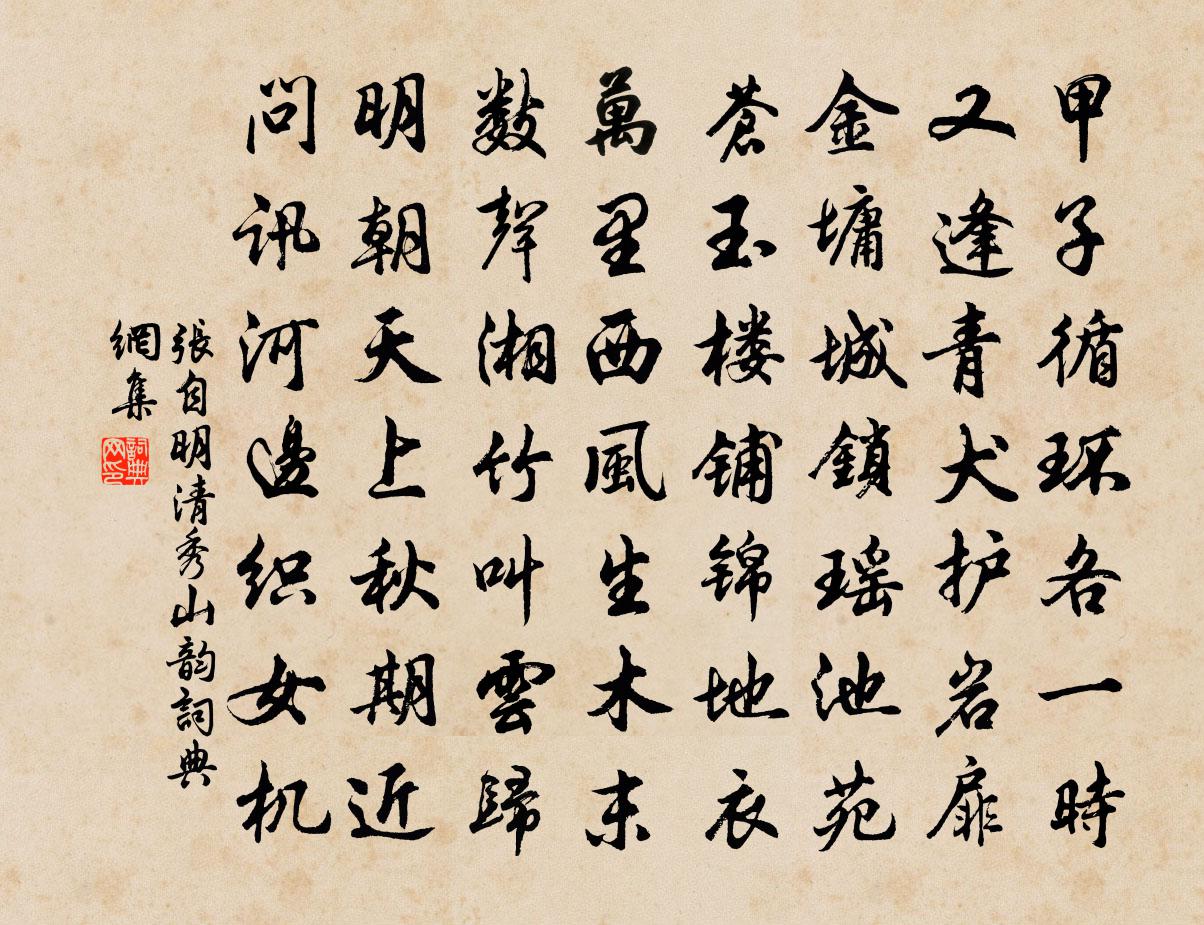 甲子循环各一時
又逢青犬护岩扉
金墉城鎖瑶池苑
蒼玉楼铺锦地衣
萬里西風生木末
数聲湘竹叫雲歸
明朝天上秋期近
問訊河邊织女机
張自明清秀山韵詞典
網集
詞典
网印